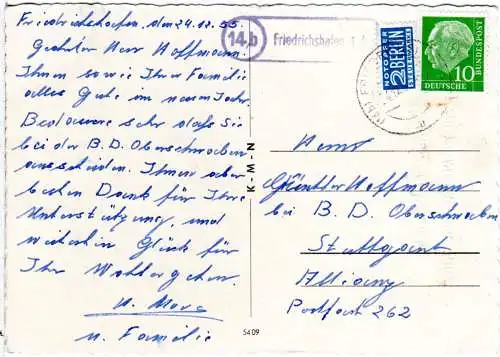 Friedrichshafen, den 24.12.55
Geehrter Herr Hoffmann,
Ihnen sowie Ihre Familie
alles Gute im neuen Jahr.
Bedauere sehr daß Sie
bei der B. D. Oberschwaben
ausscheiden. Ihnen aber
besten Dank für Ihre
Unterstützung, und
weiterhin Glück für
Ihr Wohlergehen.
u. Familie
14b
Friedrichshafen
NOTOPFER
2 BERLIN
STEUERMARKE
10
DEUTSCHE
BUNDESPOST
K - M - N
5409
Herrn
Günther Hoffmann
bei B. D. Oberschwaben
Stuttgart
Allianz
Postfach 262